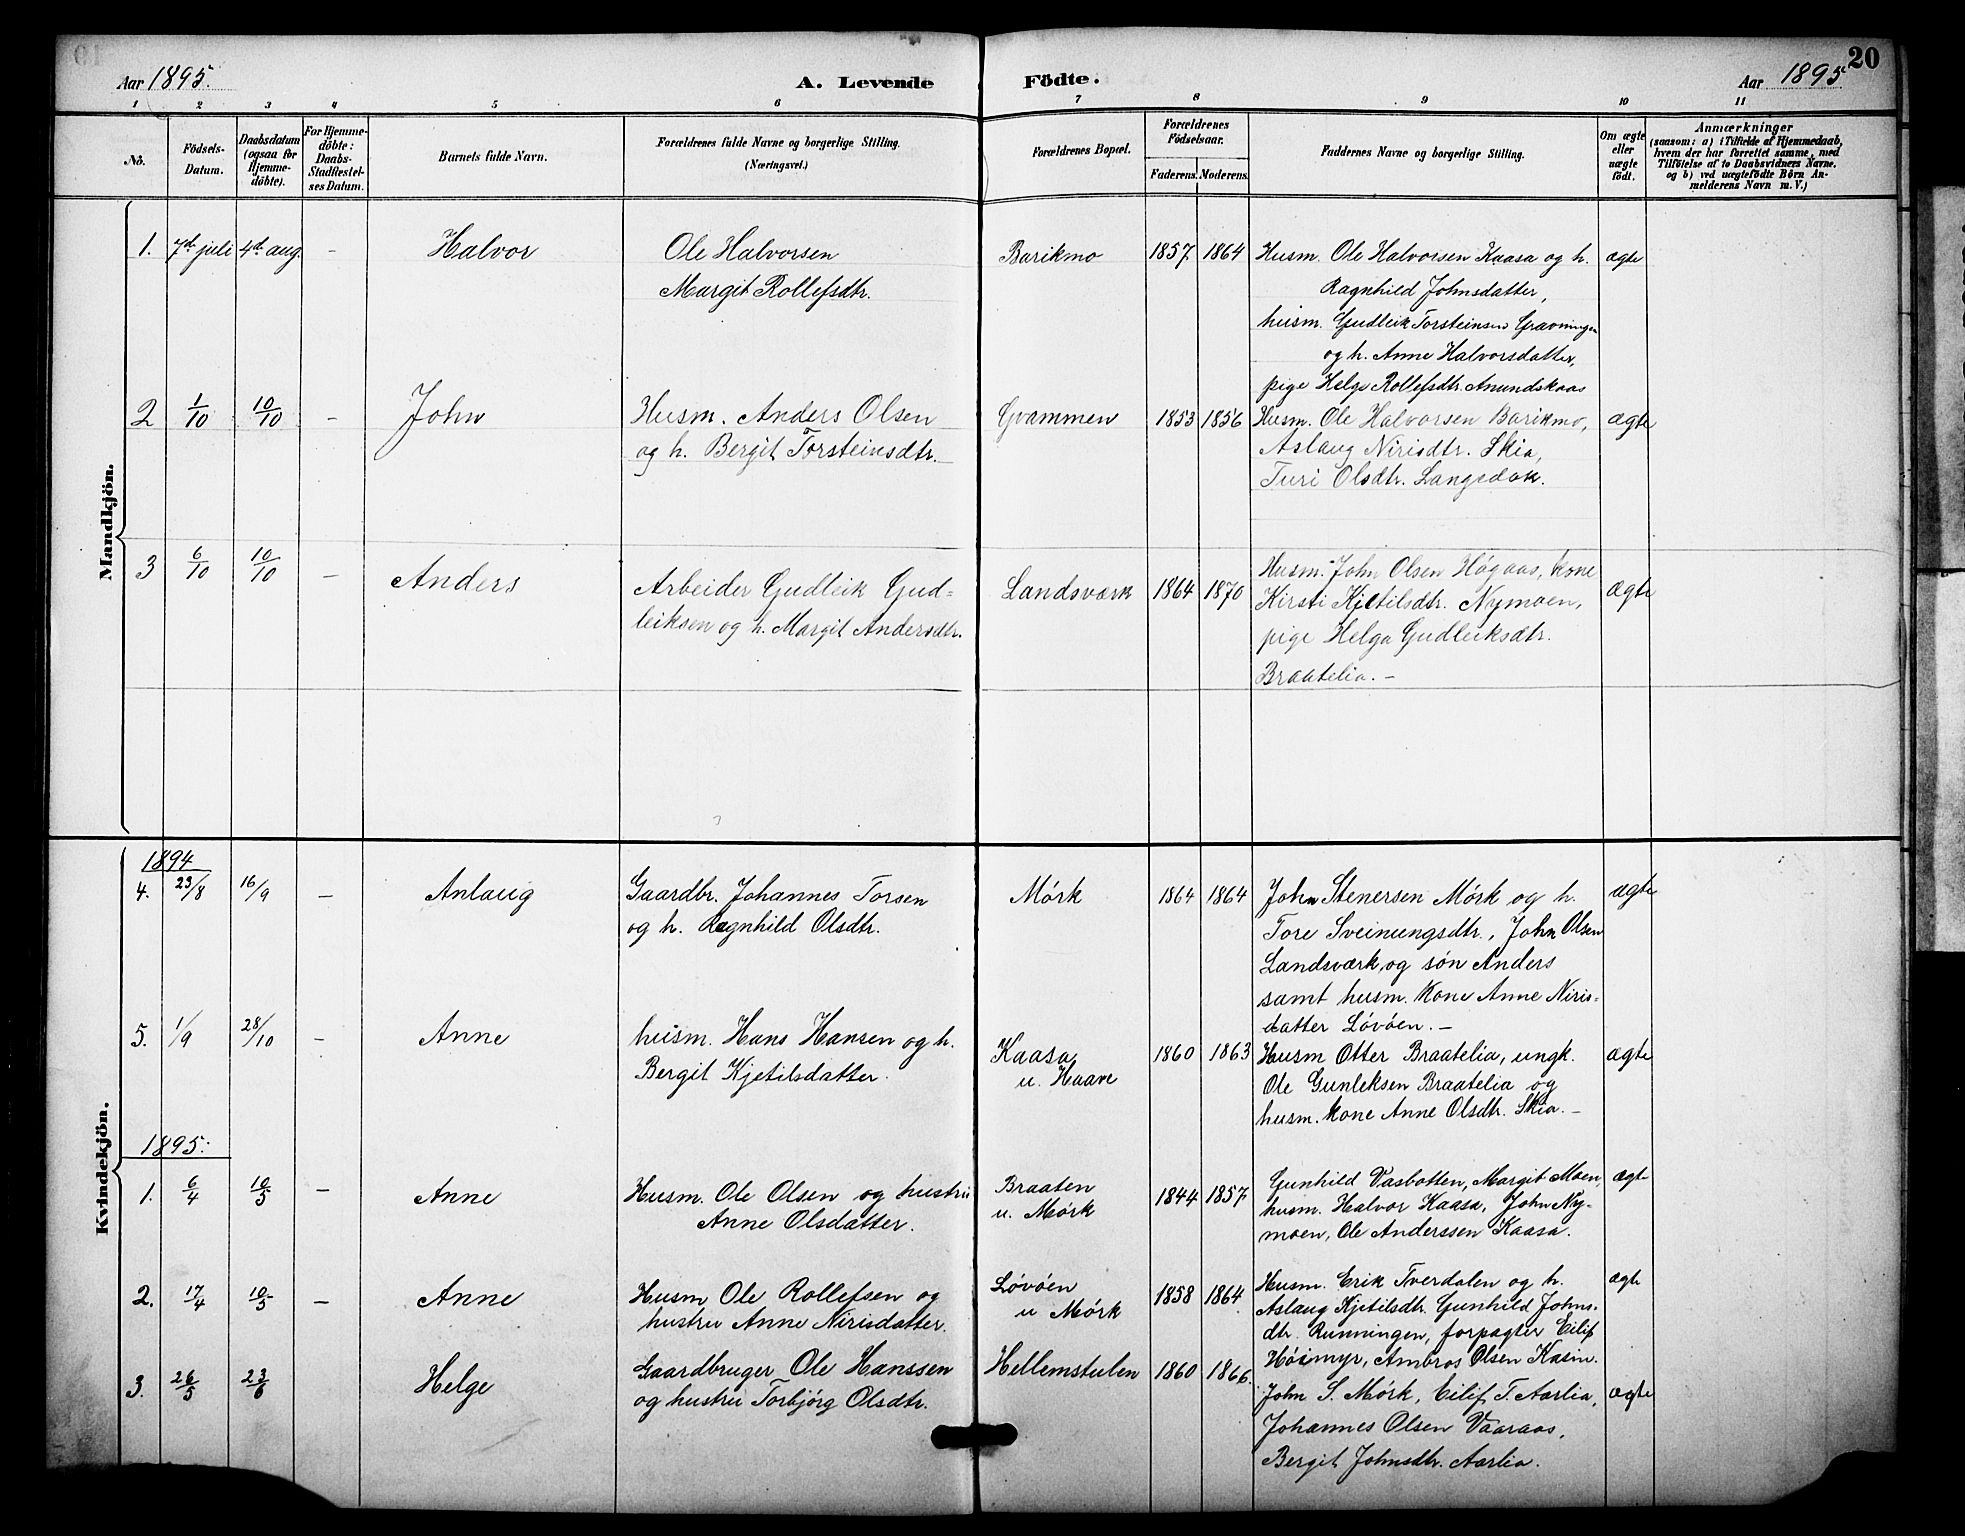 20
Aar 1895.
A. Levende Födte.
Aar 1895
1 2 3 4 5 6 7 8 9 10 11
No.
Födsels-
Datum.
Daabsdatum
(ogsaa for
Hjemme-
döbte).
For Hjemme-
döbte:
Daabs-
Stadfestel-
ses Datum.
Barnets fulde Navn.
Forældrenes fulde Navne og borgerlige Stilling.
(Næringsvei.)
Forældrenes Bopæl.
Forældrenes
Födselsaar.
Faderens. Moderens.
Faddernes Navne og borgerlige Stilling.
Om ægte
eller
uægte
födt.
Anmærkninger
(saasom: a) i Tilfælde af Hjemmedaab,
hvem der har forrettet samme, med
Tilföielse af to Daabsvidners Navne,
og b) ved uægtefödte Börn An-
melderens Navn m. V.)
Mandkjön.
1. 7d juli 4d aug. - Halvor
Ole Halvorsen
Margit Rollefsdtr.
Barikmo 1857 1864
Husm. Ole Halvorsen Kaasa og h.
Ragnhild Johnsdatter,
husm. Gudleik Torsteinsen Gravningen
og h. Anne Halvorsdatter,
pige Helge Rollefsdtr. Anundskaas
ægte
2 1/10 10/10 - John
Husm. Anders Olsen
og h. Bergit Torsteinsdtr.
Gvammen 1853 1856
Husm. Ole Halvorsen Barikmo,
Aslaug Nirisdtr. Skia,
Turi Olsdtr. Langsdok.
ægte
3 6/10 10/10 - Anders
Arbeider Gudleik Gud-
leiksen og h. Margit Andersdtr.
Landsværk 1864 1870
Husm. John Olsen Högaas, kone
Kirsti Kjetilsdtr. Nymoen,
pige Helga Gudleiksdtr.
Braatelia. -
ægte
Kvindekjön.
1894
4. 23/8 16/9 - Anlaug
Gaardbr. Johannes Torsen
og h. Ragnhild Olsdtr.
Mörk 1864 1864
John Stenersen Mörk og h.
Tore Sveinungsdtr., John Olsen
Landsværk, og sön Anders
samt husm. kone Anne Niris-
datter Lövöen. -
ægte
5. 1/9 28/10 - Anne
husm. Hans Hansen og h.
Bergit Kjetilsdatter.
Kaasa
u. Haave
1860 1863
Husm Otter Braatelia, ungk.
Ole Gunleksen Braatelia og
husm. kone Anne Olsdtr. Skia. -
ægte
1895:
1. 6/4 10/5 - Anne
Husm. Ole Olsen og hustru
Anne Olsdatter.
Braaten
u. Mörk
1844 1857
Gunhild Vasbotten, Margit Moen,
husm. Halvor Kaasa, John Ny-
moen, Ole Anderssen Kaasa.
ægte
2. 17/4 10/5 - Anne
Husm Ole Rollefsen og
hustru Anne Nirisdatter.
Lövöen
u Mörk
1858 1864
Husm. Erik Tverdalen og h.
Aslaug Kjetilsdtr. Gunhild Johns-
dtr. Runningen, forpagter Eilif
Höimyr, Ambros Olsen Kasin.
ægte
3. 26/5 23/6 Helge
Gaardbruger Ole Hanssen
og hustru Torbjörg Olsdtr.
Hellemstulen 1860 1866.
John S. Mörk, Eilif T. Aarlia,
Johannes Olsen Vaaraas,
Bergit Johnsdtr. Aarlia.
ægte